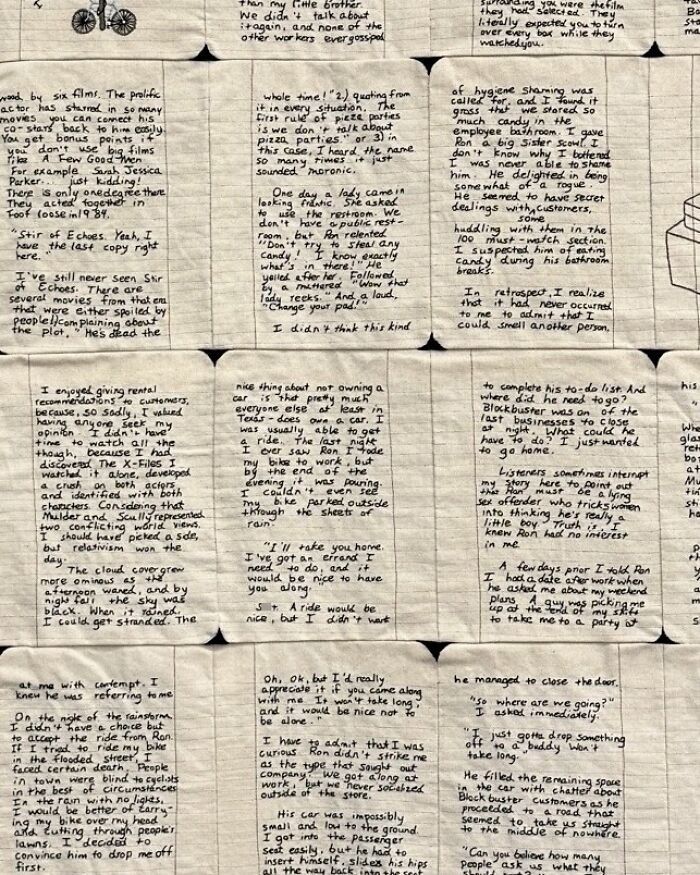 than my little brother.
We didn't talk about
it again, and none of the
other workers ever gossiped
surrounding you were the film
they had selected. They
literally expected you to turn
over every box while they
watched you.
wood by six films. The prolific
actor has starred in so many
movies you can connect his
co-stars back to him easily.
You get bonus points if
you don't use big films
like A Few Good Men
For example Sarah Jessica
Parker... just kidding!
There is only one degree there
They acted together in
Footloose in 1984.
"Stir of Echoes. Yeah, I
have the last copy right
here."
I've still never seen Stir
of Echoes. There are
several movies from that era
that were either spoiled by
people 1) complaining about
the plot, "He's dead the
whole time!" 2) quoting from
it in every situation. The
first rule of pizza parties
is we don't talk about
pizza parties." or 3) in
this case, I heard the name
so many times it just
sounded moronic.
One day a lady came in
looking frantic. She asked
to use the restroom. We
don't have a public rest-
room, but Ron relented
"Don't try to steal any
candy! I know exactly
what's in there!" He
yelled after her. Followed
by a muttered "Wow that
lady reeks." And a loud,
"Change your pad!"
I didn't think this kind
of hygiene shaming was
called for, and I found it
gross that we stored so
much candy in the
employee bathroom. I gave
Ron a big Sister Scowl. I
don't know why I bothered
I was never able to shame
him. He delighted in being
somewhat of a rogue.
He seemed to have secret
dealings with customers,
some
huddling with them in the
100 must-watch section.
I suspected him of eating
candy during his bathroom
breaks.
In retrospect, I realize
that it had never occurred
to me to admit that I
could smell another person.
I enjoyed giving rental
recommendations to customers,
because, so sadly, I valued
having anyone seek my
opinion. I didn't have
time to watch all the
though, because I had
discovered The X-Files I
watched it alone, developed
a crush on both actors
and identified with both
characters. Considering that
Mulder and Scully represented
two conflicting world views.
I should have picked a side,
but relativism won the
day.
The cloud cover grew
more ominous as the
afternoon waned, and by
night fall the sky was
black. When it rained,
I could get stranded. The
nice thing about not owning a
car is that pretty much
everyone else at least in
Texas - does own a car. I
was usually able to get
a ride. The last night
I ever saw Ron I rode
my bike to work, but
by the end of the
evening it was pouring.
I couldn't even see
my bike parked outside
through the sheets of
rain.
"I'll take you home.
I've got an errand I
need to do, and it
would be nice to have
you along."
A ride would be
nice, but I didn't want
to complete his to-do list. And
where did he need to go?
Blockbuster was on of the
last businesses to close
at night. What could he
have to do? I just wanted
to go home.
Listeners sometimes interrupt
my story here to point out
this Ron must be a lying
sex offender who tricks women
into thinking he's really a
little boy. Truth is, I
knew Ron had no interest
in me.
A few days prior I told Ron
I had a date after work when
he asked me about my weekend
plans. A guy was picking me
up at the end of my shift
to take me to a party at
his
at me with contempt. I
knew he was referring to me
On the night of the rainstorm,
I didn't have a choice but
to accept the ride from Ron.
If I tried to ride my bike
in the flooded street, I
faced certain death. People
in town were blind to cyclists
in the best of circumstances
In the rain with no lights,
I would be better of carry-
ing my bike over my head
and cutting through people's
lawns. I decided to
convince him to drop me off
first.
Oh, Ok, but I'd really
appreciate it if you came along
with me. It won't take long,
and it would be nice not to
be alone."
I have to admit that I was
curious. Ron didn't strike me
as the type that sought out
company. We got along at
work, but we never socialized
outside of the store.
His car was impossibly
small and low to the ground.
I got into the passenger
seat easily, but he had to
insert himself, slides his hips
all the way back into the seat
he managed to close the door.
"So where are we going?"
I asked immediately.
"I just gotta drop something
off to a buddy Won't
take long."
He filled the remaining space
in the car with chatter about
Blockbuster customers as he
proceeded to a road that
seemed to take us straight
to the middle of nowhere.
"Can you believe how many
people ask us what they